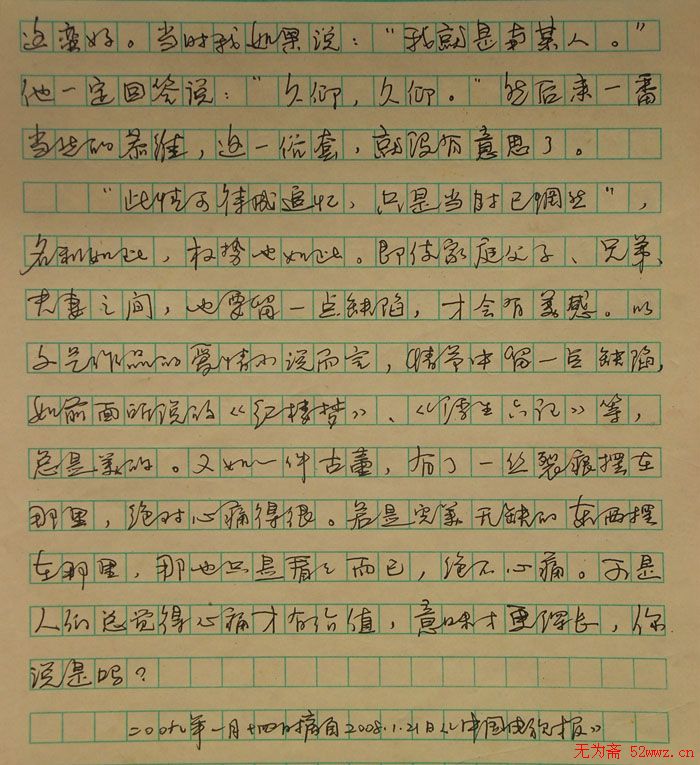 这蛮好。当时我如果说：“我就是南某人。”
他一定回答说：“久仰，久仰。”然后来一番
当然的恭维，这一俗套，就没有意思了。
“此情可待成追忆，只是当时已惘然”，
名利如此，权势也如此。即使家庭父子、兄弟、
夫妻之间，也要留一点缺陷，才会有美感。以
文艺作品的爱情小说而言，情节中留一点缺陷，
如前面所说的《红楼梦》、《浮生六记》等，
总是美的。又如一件古董，有了一丝裂痕摆在
那里，绝对心痛得很。若是完美无缺的东西摆
在那里，那也只是看看而已，绝不心痛。可是
人们总觉得心痛才有价值，意味才更深长，你
说是吗？
二〇〇九年一月十四日摘自2008.1.21日《中国电视报》
无为斋 52wwz.cn